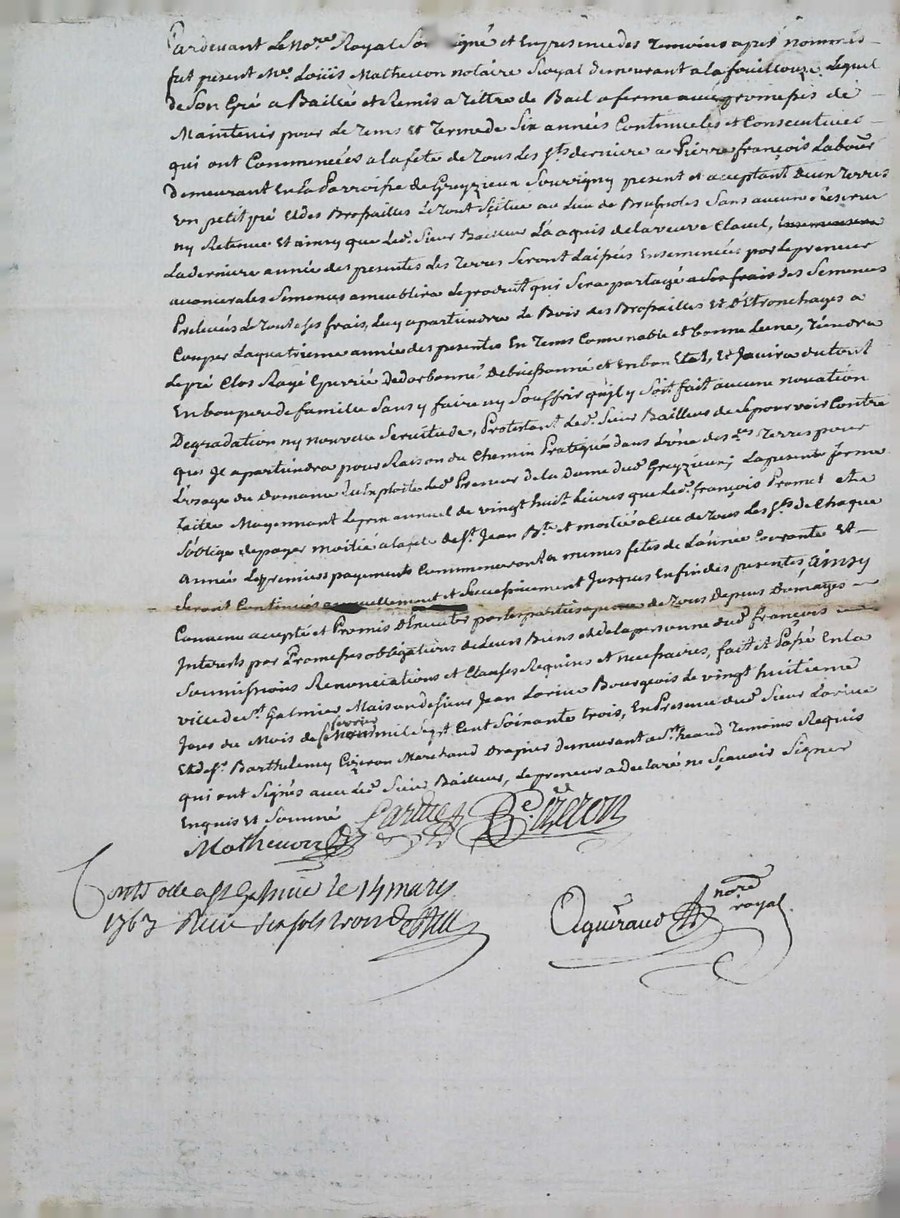 Pardevant Le No.re Royal Soussigné et En presence des Temoins apres nommés
fut present M.e Loüis Matheucon notaire Royal demeurant a la fouillouze Lequel
de Son Gré a Baillé et Remis a Tittre de Bail a ferme avec promesses de
Maintenir pour Le Tems et Terme de Six années Continuelles et Consecutives
qui ont Commencées a la fete de Tous Les S.ts derniere a Pierre françois Labour
Demeurant En La Parroisse de Greyzieux Souvigny present et aceptant de un Terres
un petit pré Et des Brossailles Le Tout Scitué au Lieu de Brugnols Sans aucune réserve
ny Retenue Et ainsy que Led. Sieur Bailleur L'a aquis de la veuve Clavel,
La derniere année des presentes des Terres Seront Laissés Ensemencées par Le preneur
avoni Semences Le produit qui Sera partagé des Semences
Prelevés de Tout frais, Luy apartiendra Le Bois des Brossailles Et d'Etronchages a
Couper La quatrieme année des presentes En Tems Convenable et bonne Lune, Tiendra
Le pré Clos Rasé Epierré Debuissonné et En bon Etat, Et Jouira du tout
En bon pere de famille Sans y faire ny Souffrir qu'il y Soit fait aucune novation
Degradation ny nouvelle Servitude, Protestant Led. Sieur Bailleur de Se pourvoir Contre
qui Il apartiendra pour Raison du Chemin Pratiqué dans L'une des d.es Terres pour
L'usage du Domaine qu'Exploite Led. Preneur de la Dame dud. Greyzieux; La presente ferme
faitte Moyennant Le prix annuel de vingt huit Livres que Led. françois Promet et
S'oblige de payer moitié a la fete de S.t Jean B.te et moitié a Celle de Tous Les S.ts de Chaque
année Les premiers payements Commenceront a memes fêtes de L'année Courante Et
Seront Continués annuellement et Successivement Jusques En fin des presentes, ainsy
Convenu accepté et Promis D'Executer par les parties a peine de Tous Depens Domages
Interets par Promesses obligations de Leurs Biens et de la personne dud. françois
Soumissions Renonciations et Clauses Requises et necessaires, fait et Passé En la
ville de S.t Galmier Maison de Sieur Jean Larive Bourgeois Le vingt huitieme
Jour du Mois de fevrier mil Sept Cent Soixante trois, En Presence dud. Sieur Larive
Et de S.r Barthelemy Cozeron Marchand Drapier demeurant a S.t Heand Temoins Requis
qui ont Signés avec Led. Sieur Bailleur, Le preneur a Declaré ne Sçavoir Signer
Enquis Et Sommé
Matheucon Larive B. Cozeron
Controllé a S.t Galmier le 14 mars
1763 Reçu six sols
nore
royal